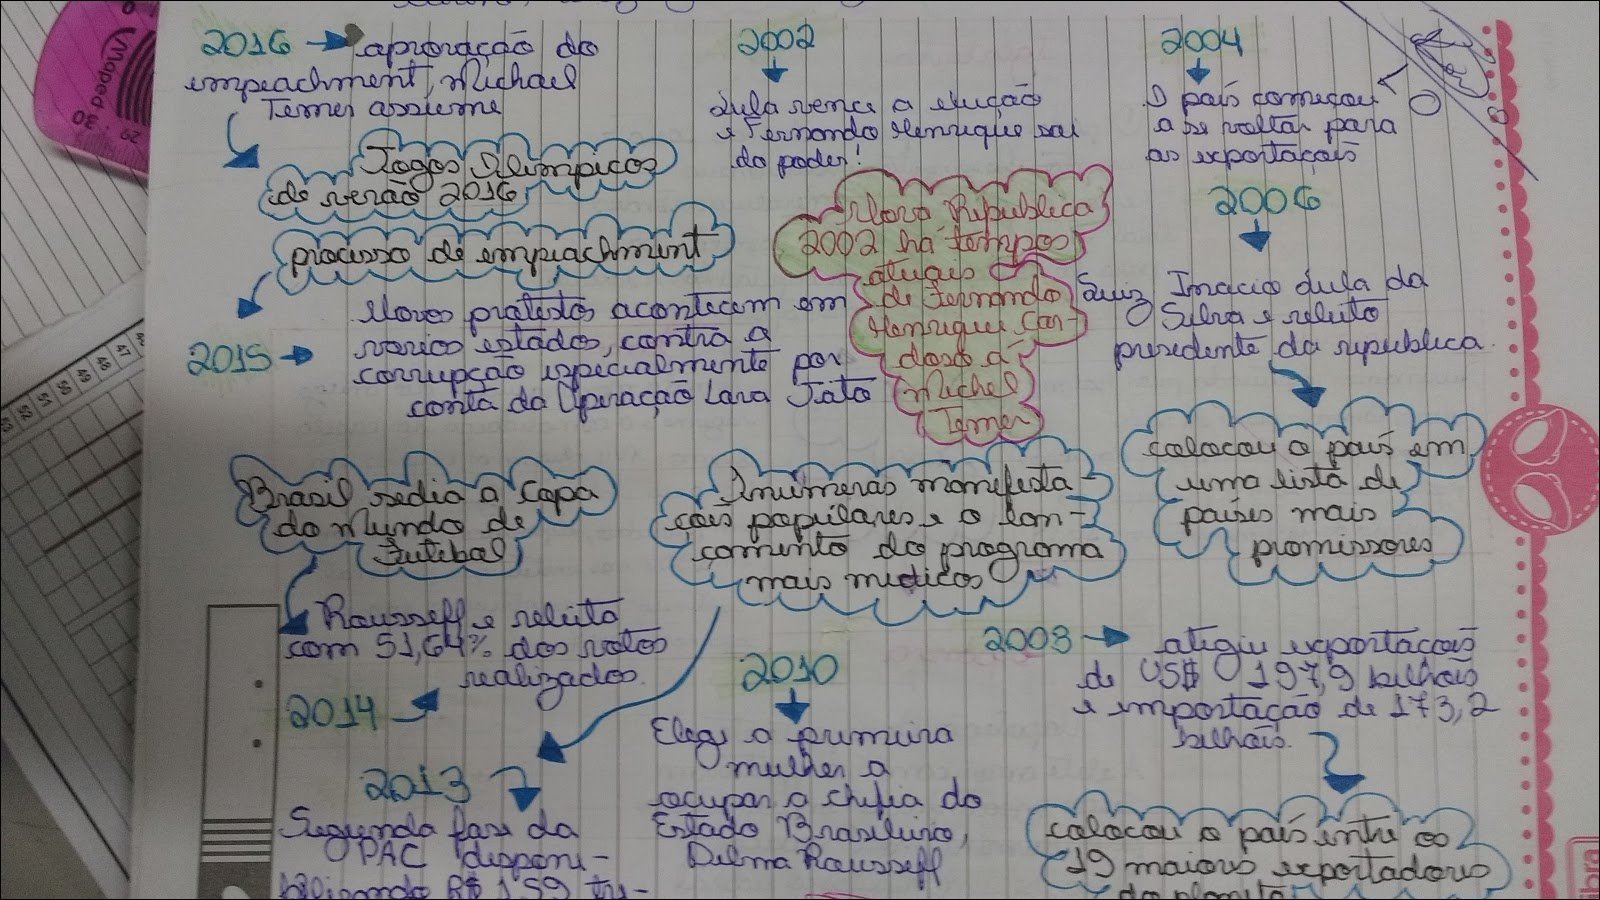 2016 → aprovação do
impeachment, Michael
Temer assume
Jogos Olimpicos
de verão 2016
processo de impeachment
Novos protestos acontecem em
varios estados, contra a
2015 → corrupção especialmente por
conta da Operação Lava Jato
Brasil sedia a Copa
do Mundo de
Futebol
Rousseff e releita
com 51,64% dos votos
realizados.
2014
2013
Segunda fase da
PAC disponi-
bilizando R$ 1,59 tri-
2002
Lula vence a eleição
e Fernando Henrique sai
do poder!
Nova Republica
2002 há tempos
atuais
de Fernando
Henrique Car-
doso á
Michel
Temer
Inumeras manifesta
çois populares e o lan-
çamento do programa
mais medicos
2010
Elege a primeira
mulher a
ocupar a chefia do
Estado Brasileiro,
Dilma Rousseff
2004
O país começou
a se voltar para
as exportaçois
2006
Luiz Inacio Lula da
Silva e releito
presidente da republica.
colocou o país em
uma lista de
países mais
promissores
2008 → atigiu exportacois
de US$ 197,9 bilhois
e importação de 173,2
bilhois.
colocou o país entre os
19 maiores exportadores
do planeta
Maped
30
29
0
52
51
50
49
48
47